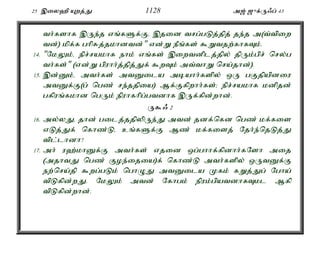 25 இலைஹி யுறத்து 1128 அஜ் ஜுக்ருஃப் 43
வர்களாக இருந்த எங்களுக்கு, இதனை வசப்படுத்தித் தந்த அ(வ்விறை
வன்) மிக்க பரிசுத்தமானவன்" என்று நீங்கள் கூறுவதற்காகவும்.
14. "மேலும், நிச்சயமாக நாம் எங்கள் இறைவனிடத்தில் திரும்பிச் செல்ப
வர்கள்" (என்று பிரார்த்தித்துக் கூறவும் அவ்வாறு செய்தான்).
15. இன்னும், அவர்கள் அவனுடைய அடியார்களில் ஒரு பகுதியினரை
அவனுக்கு(ப் பெண் சந்ததியை) ஆக்குகிறார்கள்; நிச்சயமாக மனிதன்
பகிரங்கமான பெரும் நிராகரிப்பவனாக இருக்கின்றான்.
ருகூஃ 2
16. அல்லது, தான் படைத்ததிலிருந்து அவன் தனக்கென பெண் மக்களை
எடுத்துக் கொண்டு, உங்களுக்கு ஆண் மக்களைத் தேர்ந்தெடுத்து
விட்டானா?
17. அர் ரஹ்மானுக்கு அவர்கள் எதனை ஒப்பாாக்கினார்களோ அதை
(அதாவது பெண் குழந்தையை)க் கொண்டு அவர்களில் ஒருவனுக்கு
நற்செய்தி கூறப்படும் பொழுது அவனுடைய முகம் கறுத்துப் போய்
விடுகின்றது, மேலும் அவன் கோபம் நிரம்பியவனாகவும் ஆகி
விடுகின்றான்.